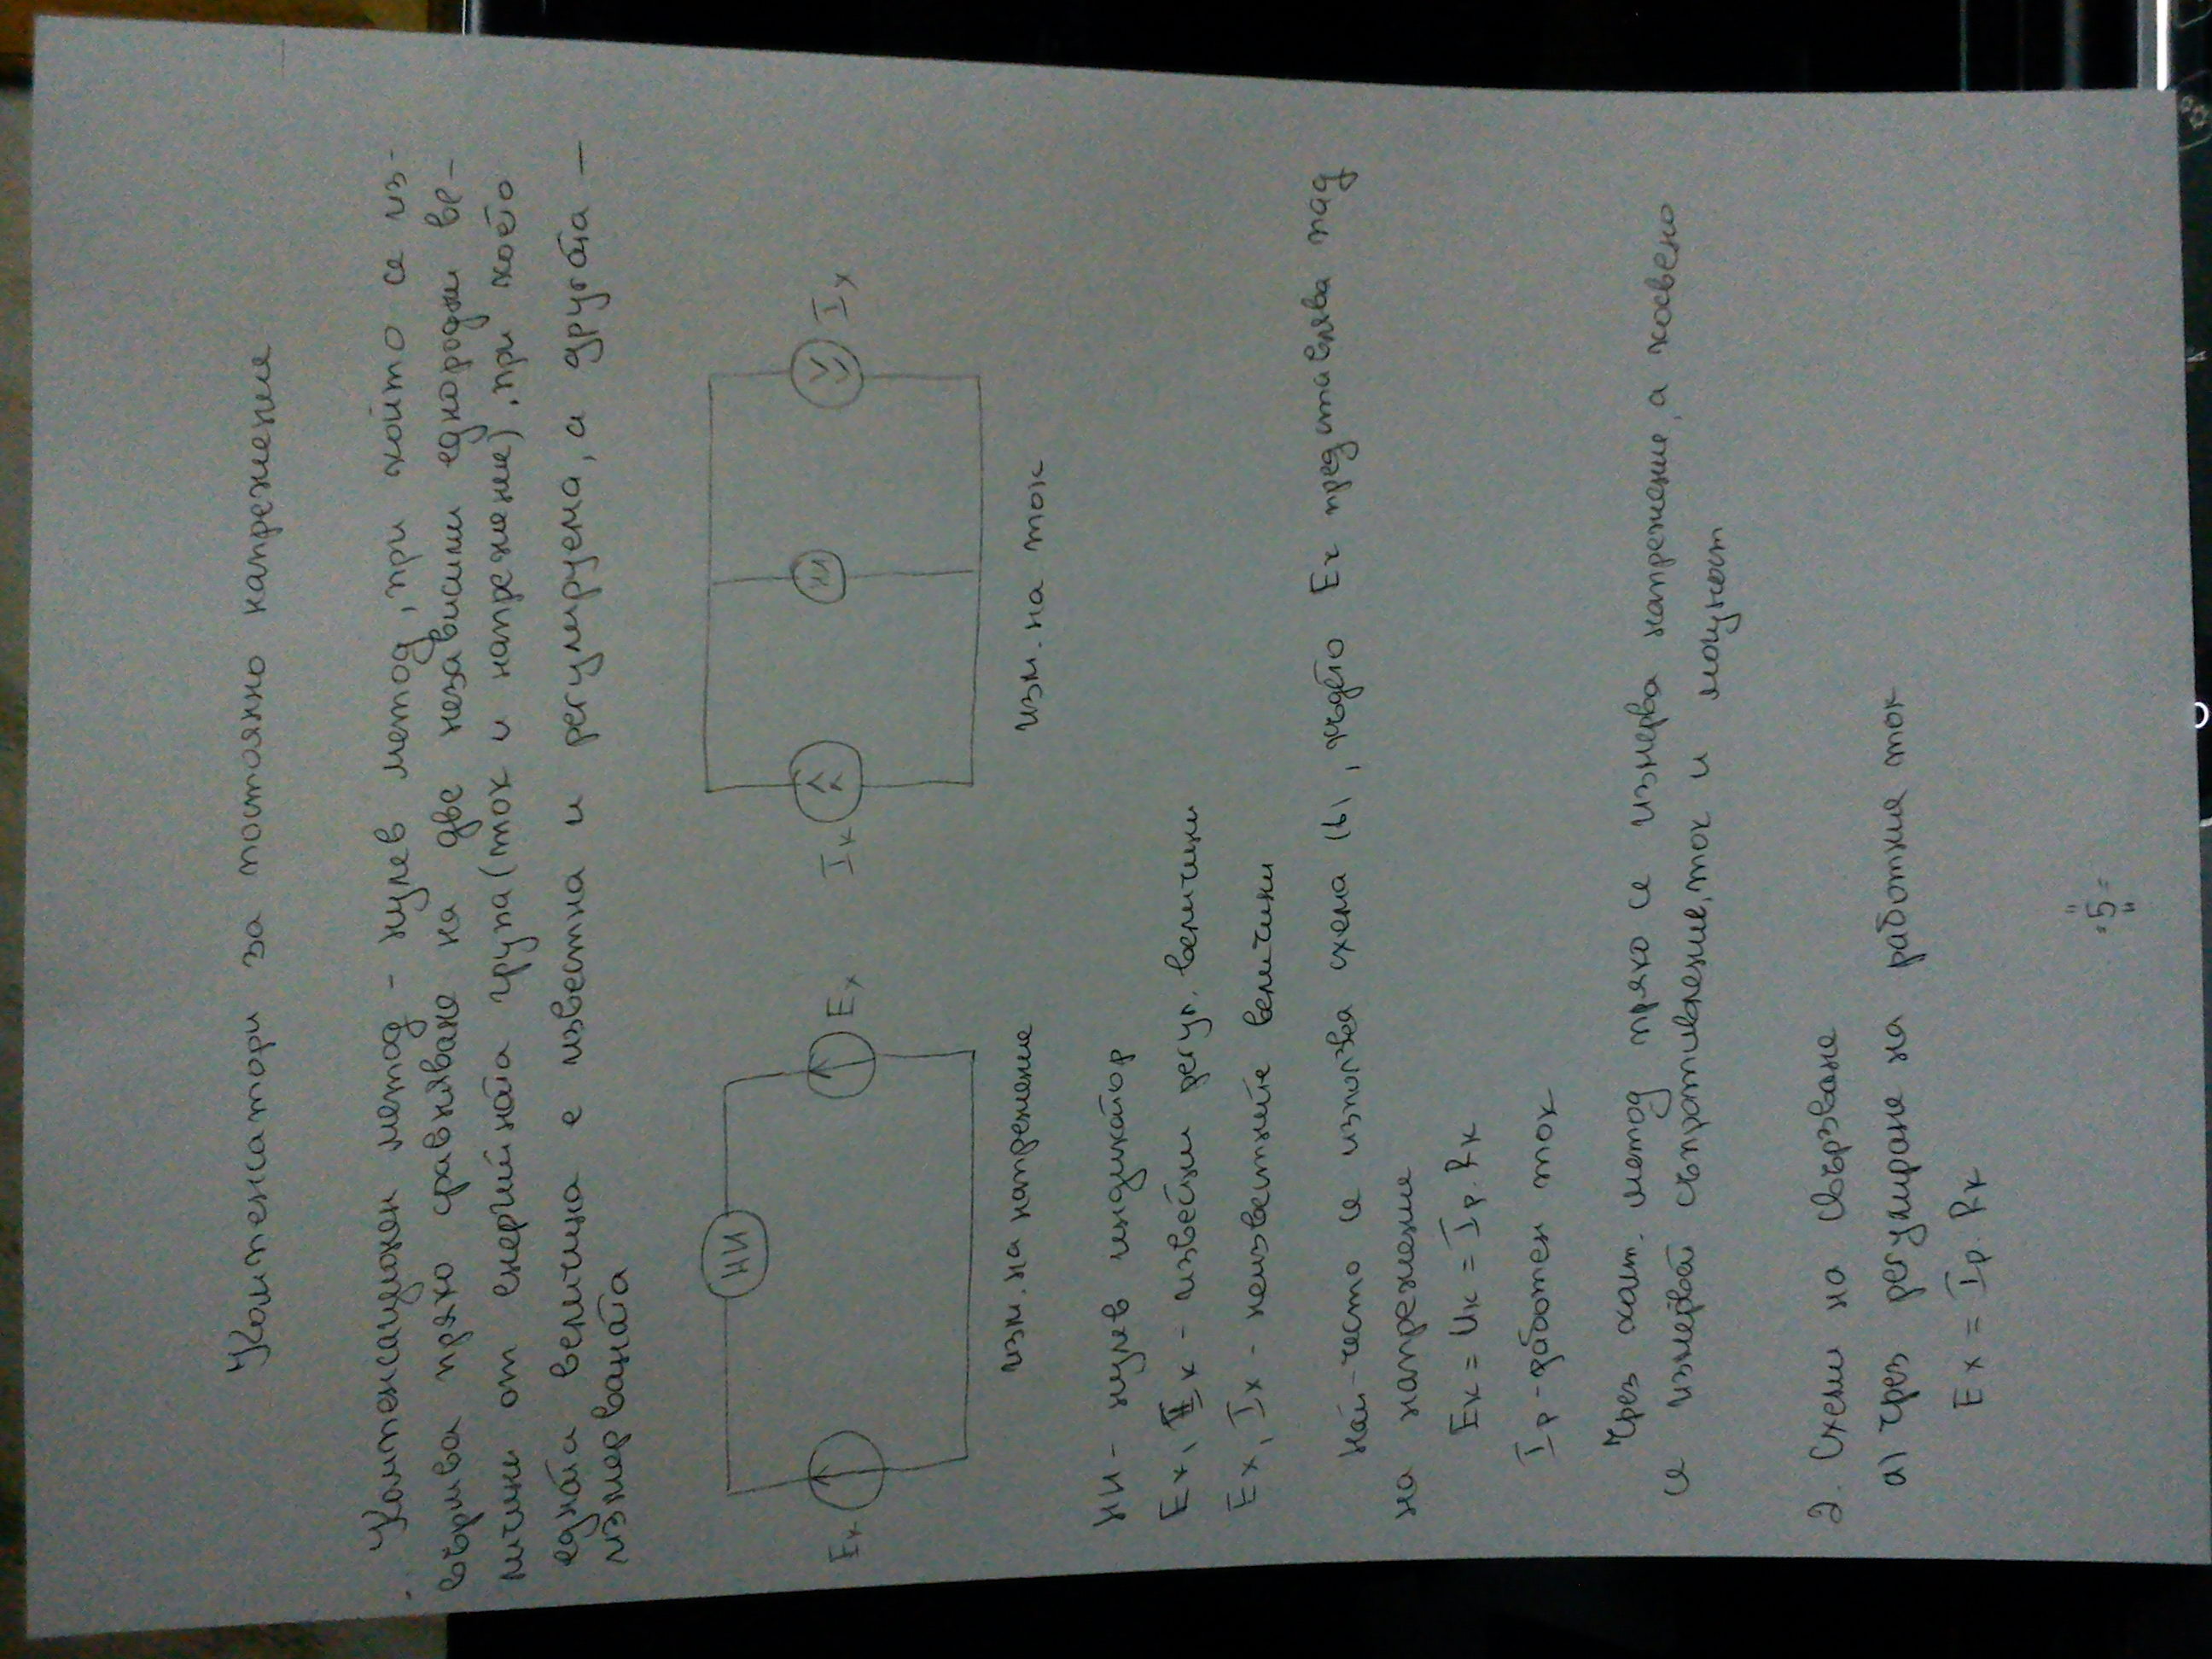 Компенсатори за постоянно напрежение
Компенсационен метод - нулев метод, при който се из-
вършва пряко сравняване на две независими еднородни ве-
личини от енергийната група (ток и напрежение), при което
едната величина е известна и регулируема, а другата –
измерваната
НИ
Eк
Ex
изм. на напрежение
Iк
НИ
Ix
изм. на ток
НИ - нулев индикатор
Eк, Iк - известни регул. величини
Ex, Ix - неизвестните величини
Най-често се използва схема (а), където Eк представлява пад
на напрежение
Eк = Uк = Iр. Rк
Iр - работен ток
Чрез комп. метод пряко се измерва напрежение, а косвено
се измерват съпротивление, ток и мощност
2. Схеми на свързване
а) Чрез регулиране на работния ток
Ex = Iр. Rк
5